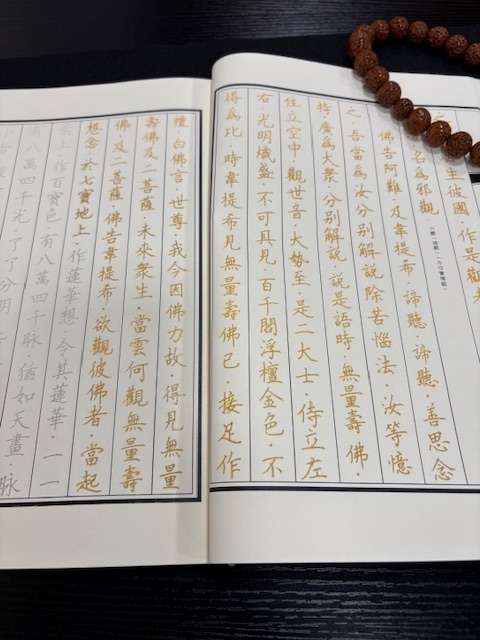 生彼國 作是觀
名為邪觀·
佛告阿難·及韋提希·諦聽·諦聽·善思念
之·吾當為汝分別解說除苦惱法·汝等憶
持·廣為大眾·分別解說·說是語時·無量壽佛·
住立空中·觀世音·大勢至·是二大士·侍立左
右·光明熾盛·不可具見·百千閻浮檀金色·不
得為比·時韋提希見無量壽佛已·接足作
禮·白佛言·世尊·我今因佛力故·得見無量
壽佛及二菩薩·未來衆生·當雲何觀無量壽
佛及二菩薩·佛告韋提希·欲觀彼佛者·當起
想念·於七寶地上·作蓮華想·令其蓮華·一一
葉上·作百寶色·有八萬四千脈·猶如天畫·脈
有八萬四千光·了了分明·